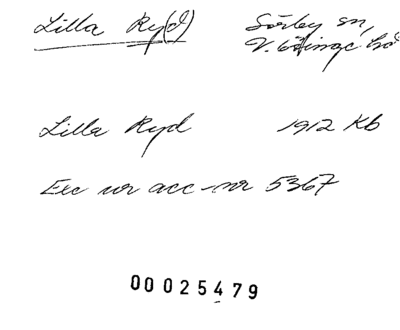 Lilla Ry(d) Sörby sn,
V. Götinge hd
Lilla Ryd 1912 Kb
Exc ur acc-nr 5367
00025479